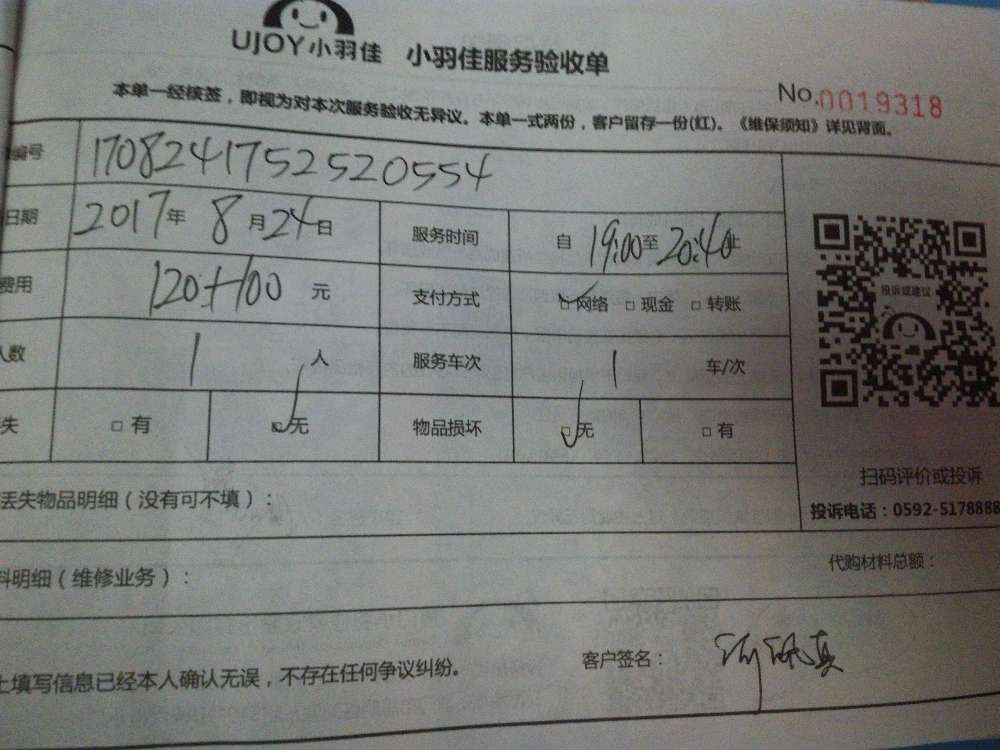 UJOY小羽佳 小羽佳服务验收单
No.0019318
本单一经核签，即视为对本次服务验收无异议。本单一式两份，客户留存一份(红)。《维保须知》详见背面。
编号 1708241752520554
日期 2017年 8月24日 服务时间 自 19:00至 20:40止
费用 120+100 元 支付方式 □网络 □现金 □转账
人数 1 人 服务车次 1 车/次
失 □有 □无 物品损坏 □无 □有
投诉或建议
扫码评价或投诉
投诉电话：0592-5178888
丢失物品明细（没有可不填）：
料明细（维修业务）： 代购材料总额：
上填写信息已经本人确认无误，不存在任何争议纠纷。 客户签名：